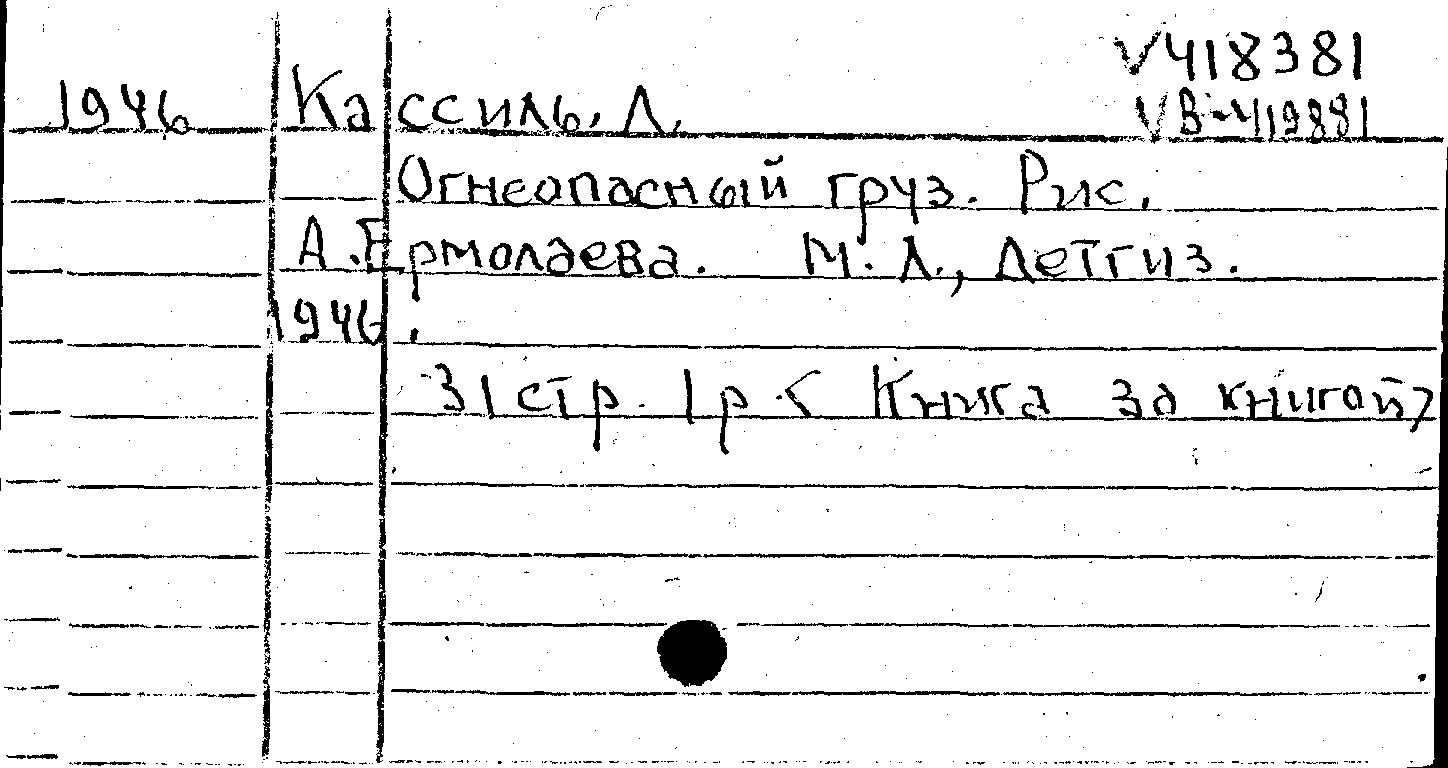 V418381
1946 Кассиль, Л.
VВ-419881
Огнеопасный груз. Рис.
А. Ермолаева. М. Л., Детгиз.
1946.
31 стр. 1 р. < Книга за книгой>